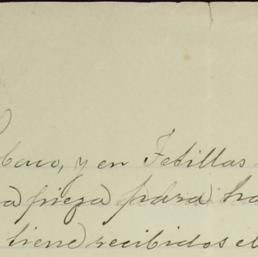 baco, y en Febillas
a pieza para ha
tiene recibidos el